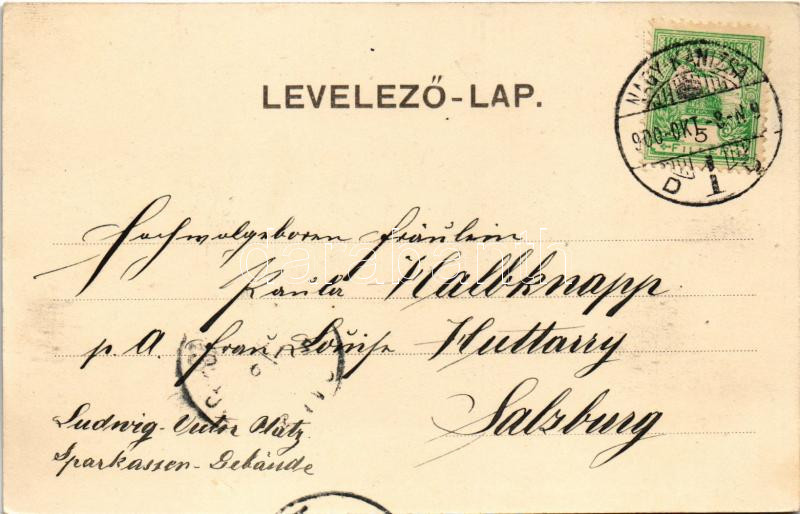 LEVELEZŐ-LAP.
NAGY-KANIZSA
900 OKT. 8-N 9
5
D 1
Hochwolgeboren Fräulein
Paula Halbknapp
p. A. Frau Louise Huttarry
Salzburg
Ludwig-Victor Platz
Sparkassen-Gebäude
darabanth